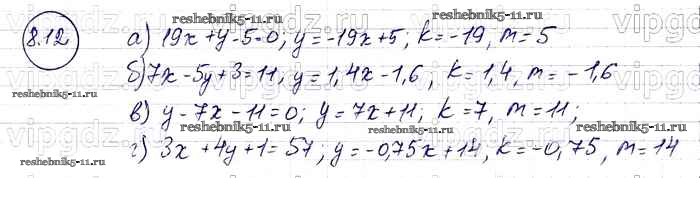 8.12
а) 19x+y-5=0; y=-19x+5; k=-19, m=5
б) 7x-5y+3=11, y=1,4x-1,6, k=1,4, m=-1,6
в) y-7x-11=0; y=7x+11; k=7, m=11;
г) 3x+4y+1=57; y=-0,75x+14, k=-0,75, m=14
reshebnik5-11.ru
reshebnik5-11.ru
reshebnik5-11.ru
reshebnik5-11.ru
reshebnik5-11.ru
reshebnik5-11.ru
reshebnik5-11.ru